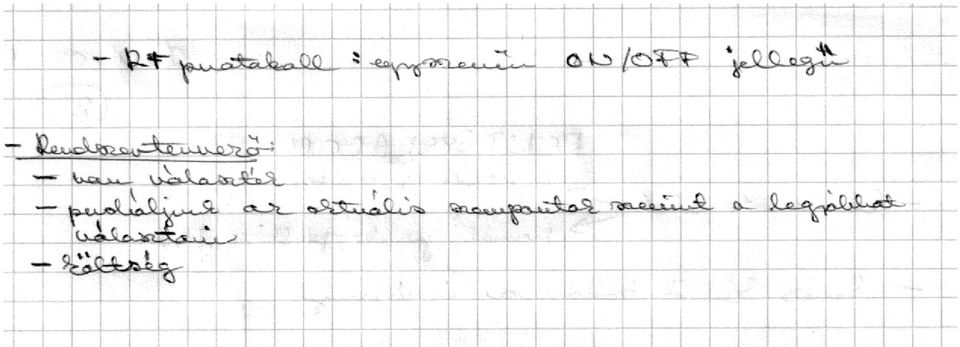 - RF protokoll : egyszerűen ON/OFF jellegű
- Rendszertervező:
- van választék
- próbáljunk az aktuális szempontok szerint a legjobbat
választani
- költség